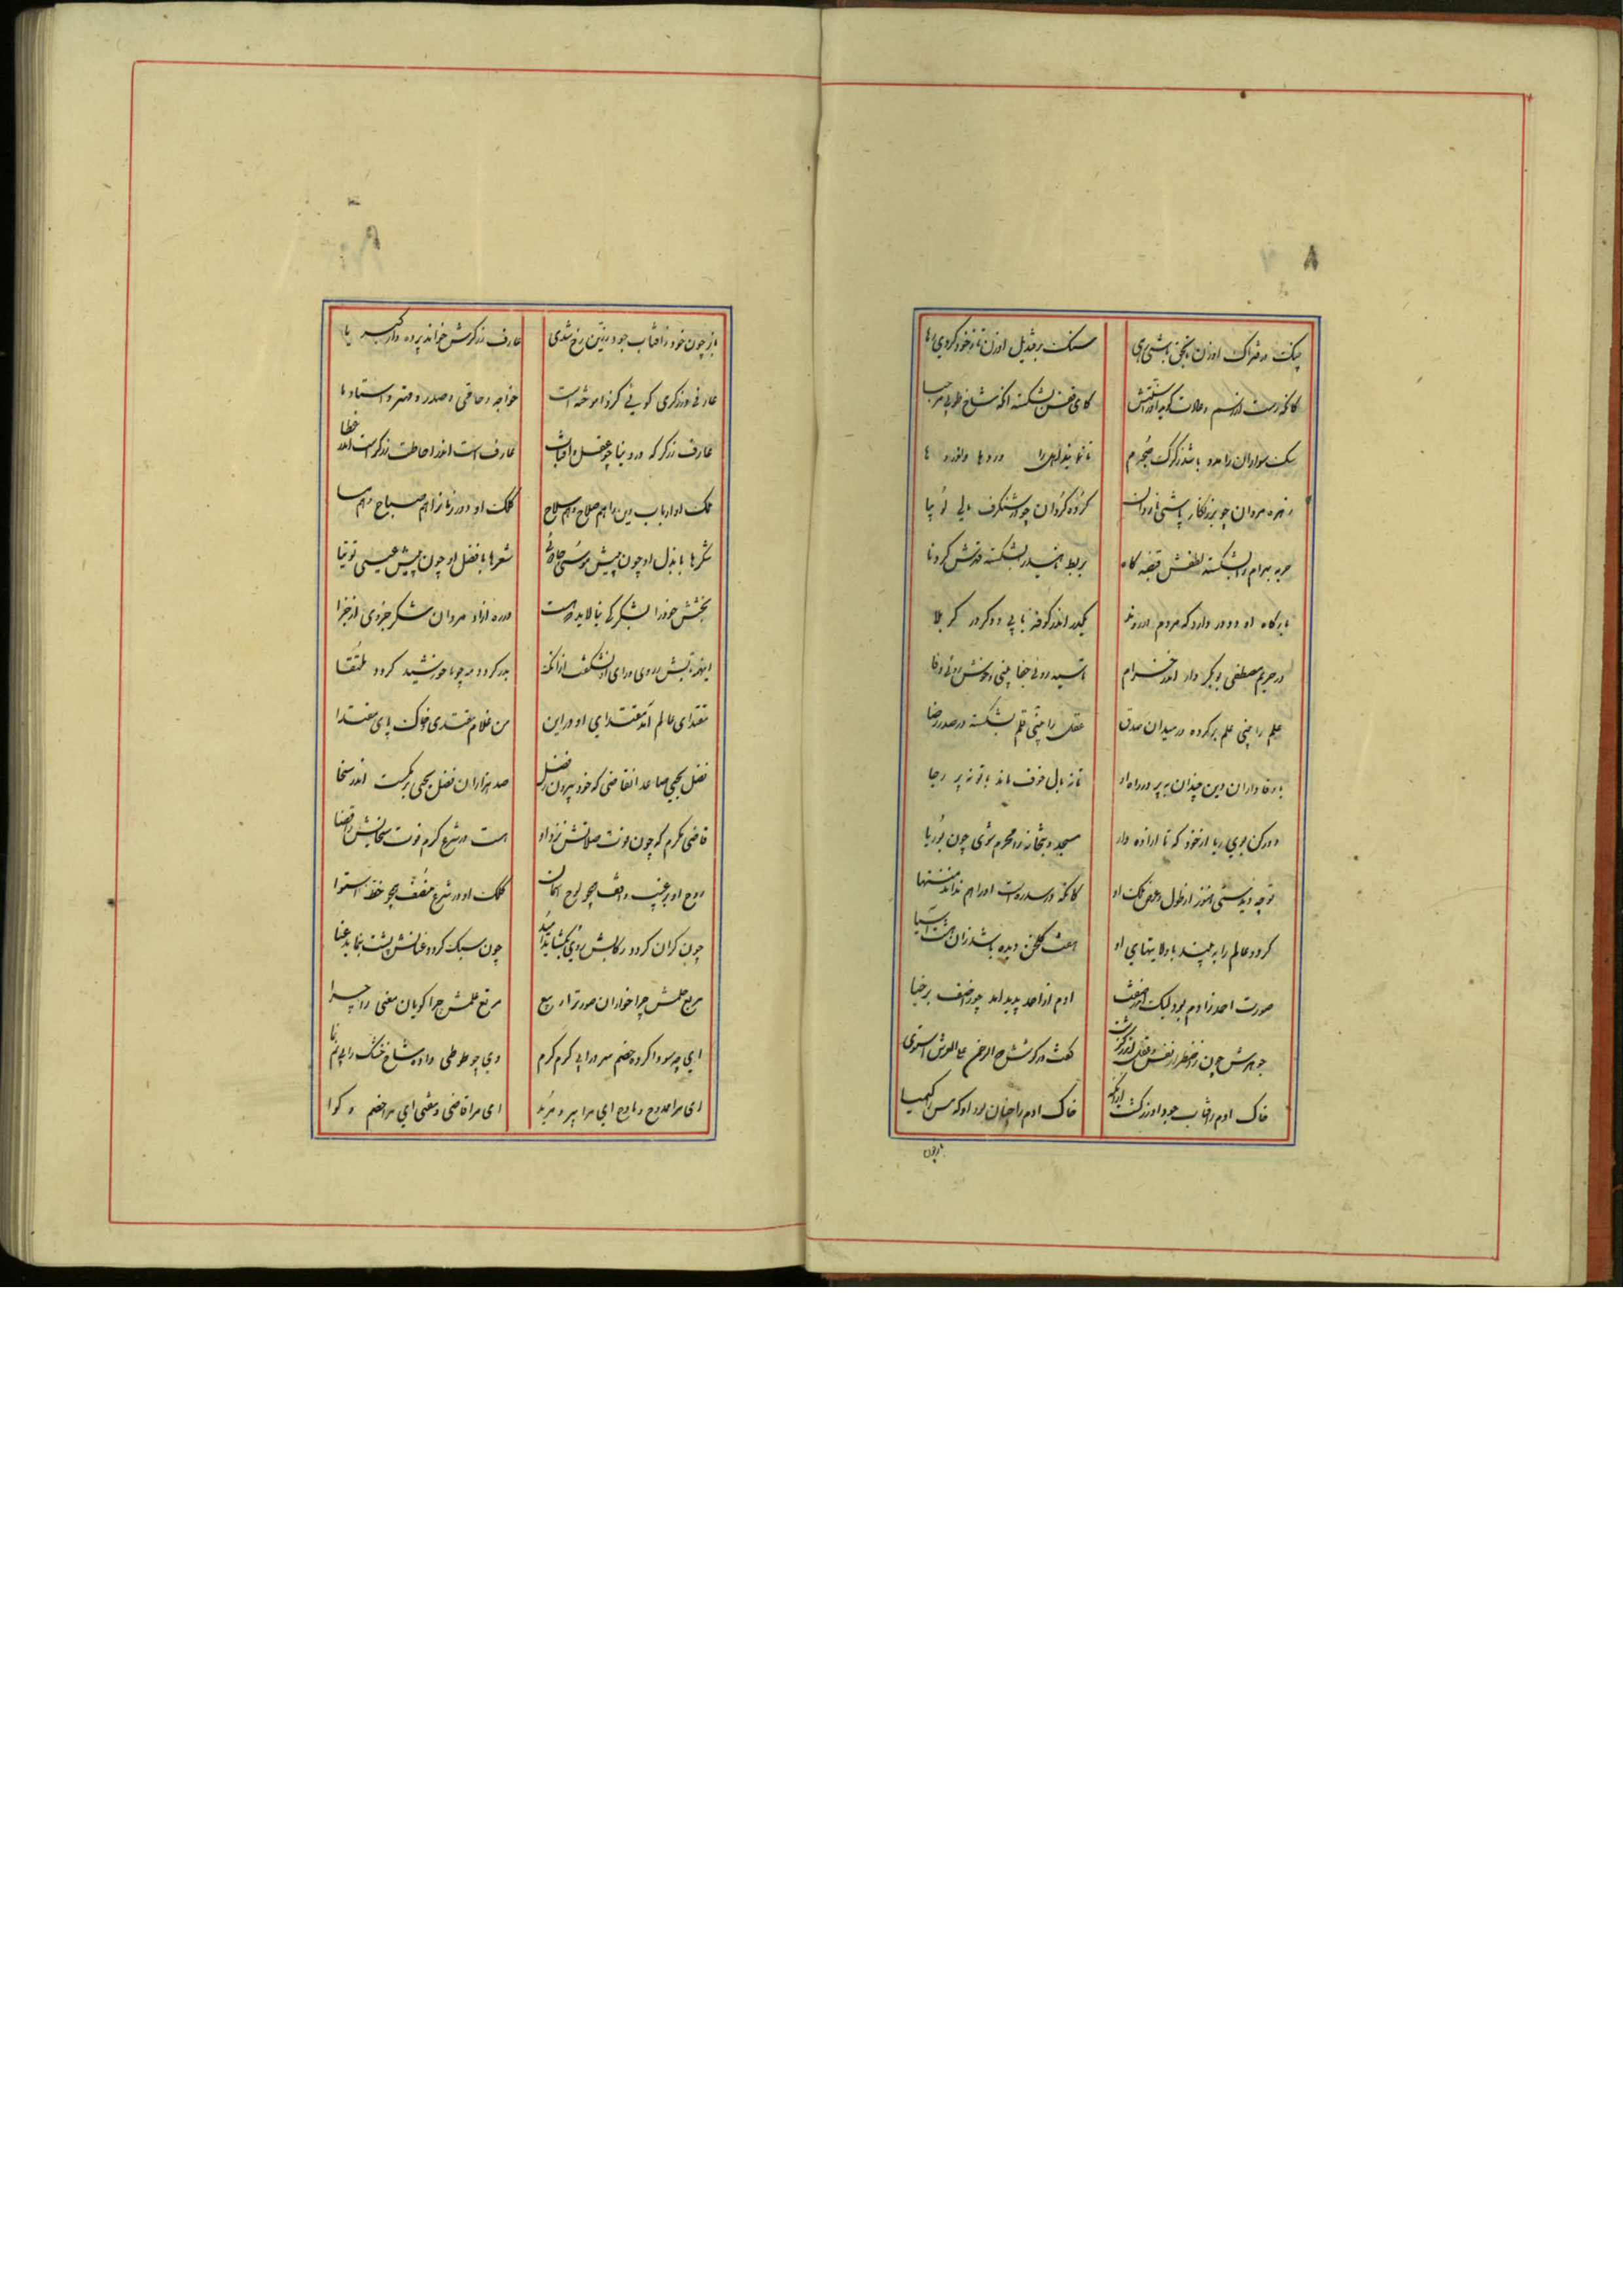 ۸
چنگ در فتراک او زن تا بحق باشی رهی سنگ بر قندیل او زن تا ز خود گردی رها
کانکه رست از رسم و عادت گوید او را سنتش کای قفس بشکسته اینک شاخ طوبی مرحبا
سگ سواران را مدد باشد ز گرگ
زهره مردان چو بر زنکار پاشی از گرده گردان چو شنگرف
حربه بهرام را بشکسته لطفش قبضه گاه بربط ناهید را بشکسته قدرش گردنا
بارگاه او دو در دارد که مردم در روند یک در اندر کوفه یابی و دگر در کربلا
در حریم مصطفی بوبکر وار اندر خرام تا سیه رویی جفا بینی و خوش رویی وفا
علم را بینی علم بر کرده در میدان صدق عقل را بینی قلم بشکسته در صدر رضا
با وفاداران دین چندان بپر در راه او تا نه بال خوف ماند با تو نه پر رجا
دور کن بوی ریا از خود که تا آزاده وار مسجد و میخانه را محرم شوی چون بوریا
تو چه دیدستی هنوز از طول و عرض ملک او کانکه در سدره‌ست او را هم نداند منتها
گرد و عالم را به بیند با ولایتهای او هفت گلخن دیده باشد زان همه شت آسیا
صورت احمد ز آدم بود لیک اندر صفت آدم از احمد پدید آمد چو ز آصف برخیا
جوهرش چون ز اضطرار نفس و عقل اندر گذشت گفت در گوشش که الرحمن علی العرش استوی
خاک آدم ز آفتاب جود او زر گشت از آنکه خاک آدم را چنان بود او که مس را کیمیا
باز چون
باز چون خود ز آفتاب جود زرین رخ شدی عارف زرگرش خواند پرده دار کبریا
عارفی و زرگری گویی کز آموخته است خواجه و حاذق و صدر و مهتر و استاد ما
عارف زرگر که در دنیا چو عقل و آفتاب عارف است اندر احاطت زرگر است اندر عطا
ملک او ارباب دین را هم صلاح و هم سلاح کلک او دور زمان را هم صباح و هم مسا
شکرها با بذل او چون پیش موسی جادوئی شعرها با فضل او چون پیش عیسی توتیا
بخشش خود را بشکر کی بیالاید دست در ره آزاد مردان شکر جزوی از جزا
اینهمه تابش ز روی و رای او نشگفت از آنکه بدر گردد مه چو با خورشید گردد ملتقا
مقتدای عالم آمد مقتدای او در این من غلام مقتدی و خاک پای مقتدا
فضل یحیی صاعد آن قاضی که خود بیرون ز فضل صد هزاران فضل یحیی برمکست اندر سخا
قاضی مکرم که چون فوت صلاتش نزد او هست در شرع کرم فوت سخایش را قضا
روح او بر غیب واقف همچو لوح آسمان کلک او در شرع منصف همچو خط استوا
چون گران گردد رکابش روی بگشاید امید چون سبک گردد عنانش پشت بنماید عنا
مربع حلمش چراخواران صورت را ربیع مرتع علمش چراگویان معنی را چرا
ای چه سودا کرده خصم سرد را بی گرم گرم وی چو طوطی داده شاخ خشک را بی نم نما
ای مرا ممدوح و مادح ای مرا پیر و مرید ای مرا قاضی و مفتی ای مرا خصم و گوا